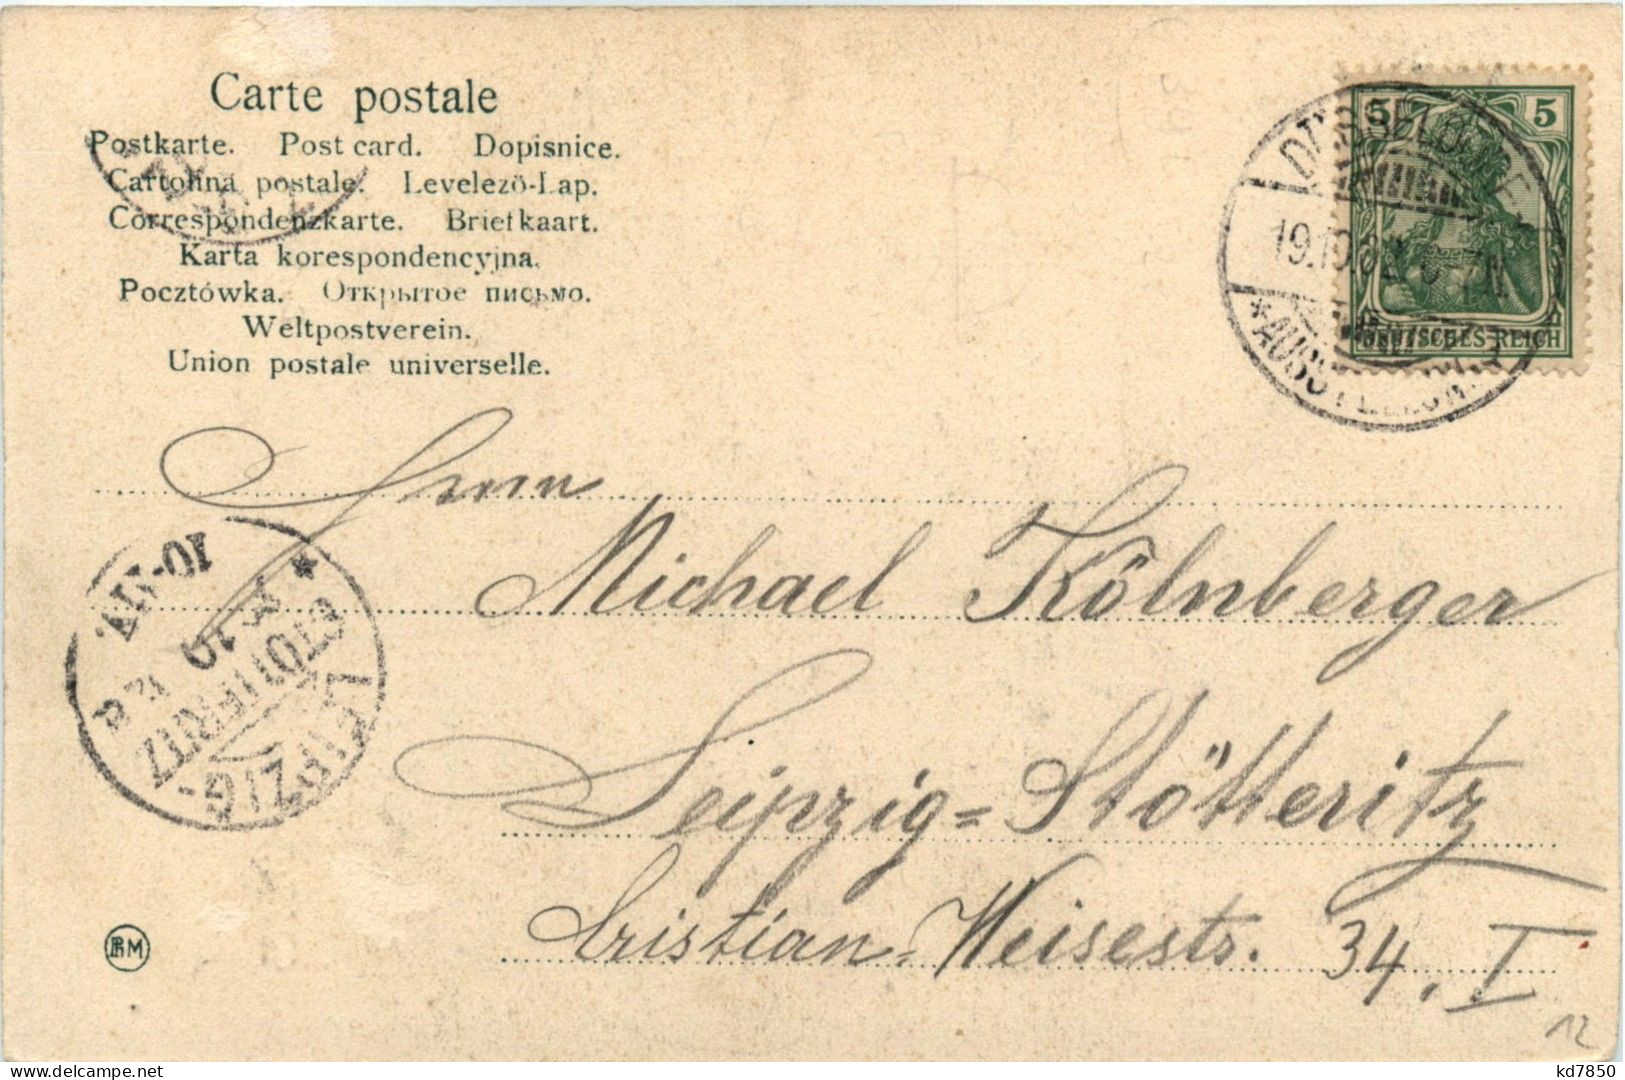 Carte postale
Postkarte. Post card. Dopisnice.
Cartolina postale. Levelezö-Lap.
Correspondenzkarte. Briefkaart.
Karta korespondencyjna.
Pocztówka. Открытое письмо.
Weltpostverein.
Union postale universelle.
5 5
DEUTSCHES REICH
DÜSSELDORF
19.10.
* AUSSTELLUNG
Herrn
Michael Kölnberger
Leipzig=Stötteritz
Cristian=Weisestr. 34. I
10-11V.
*
LEIPZIG-
STÖTTERITZ
PRM
12
kd7850